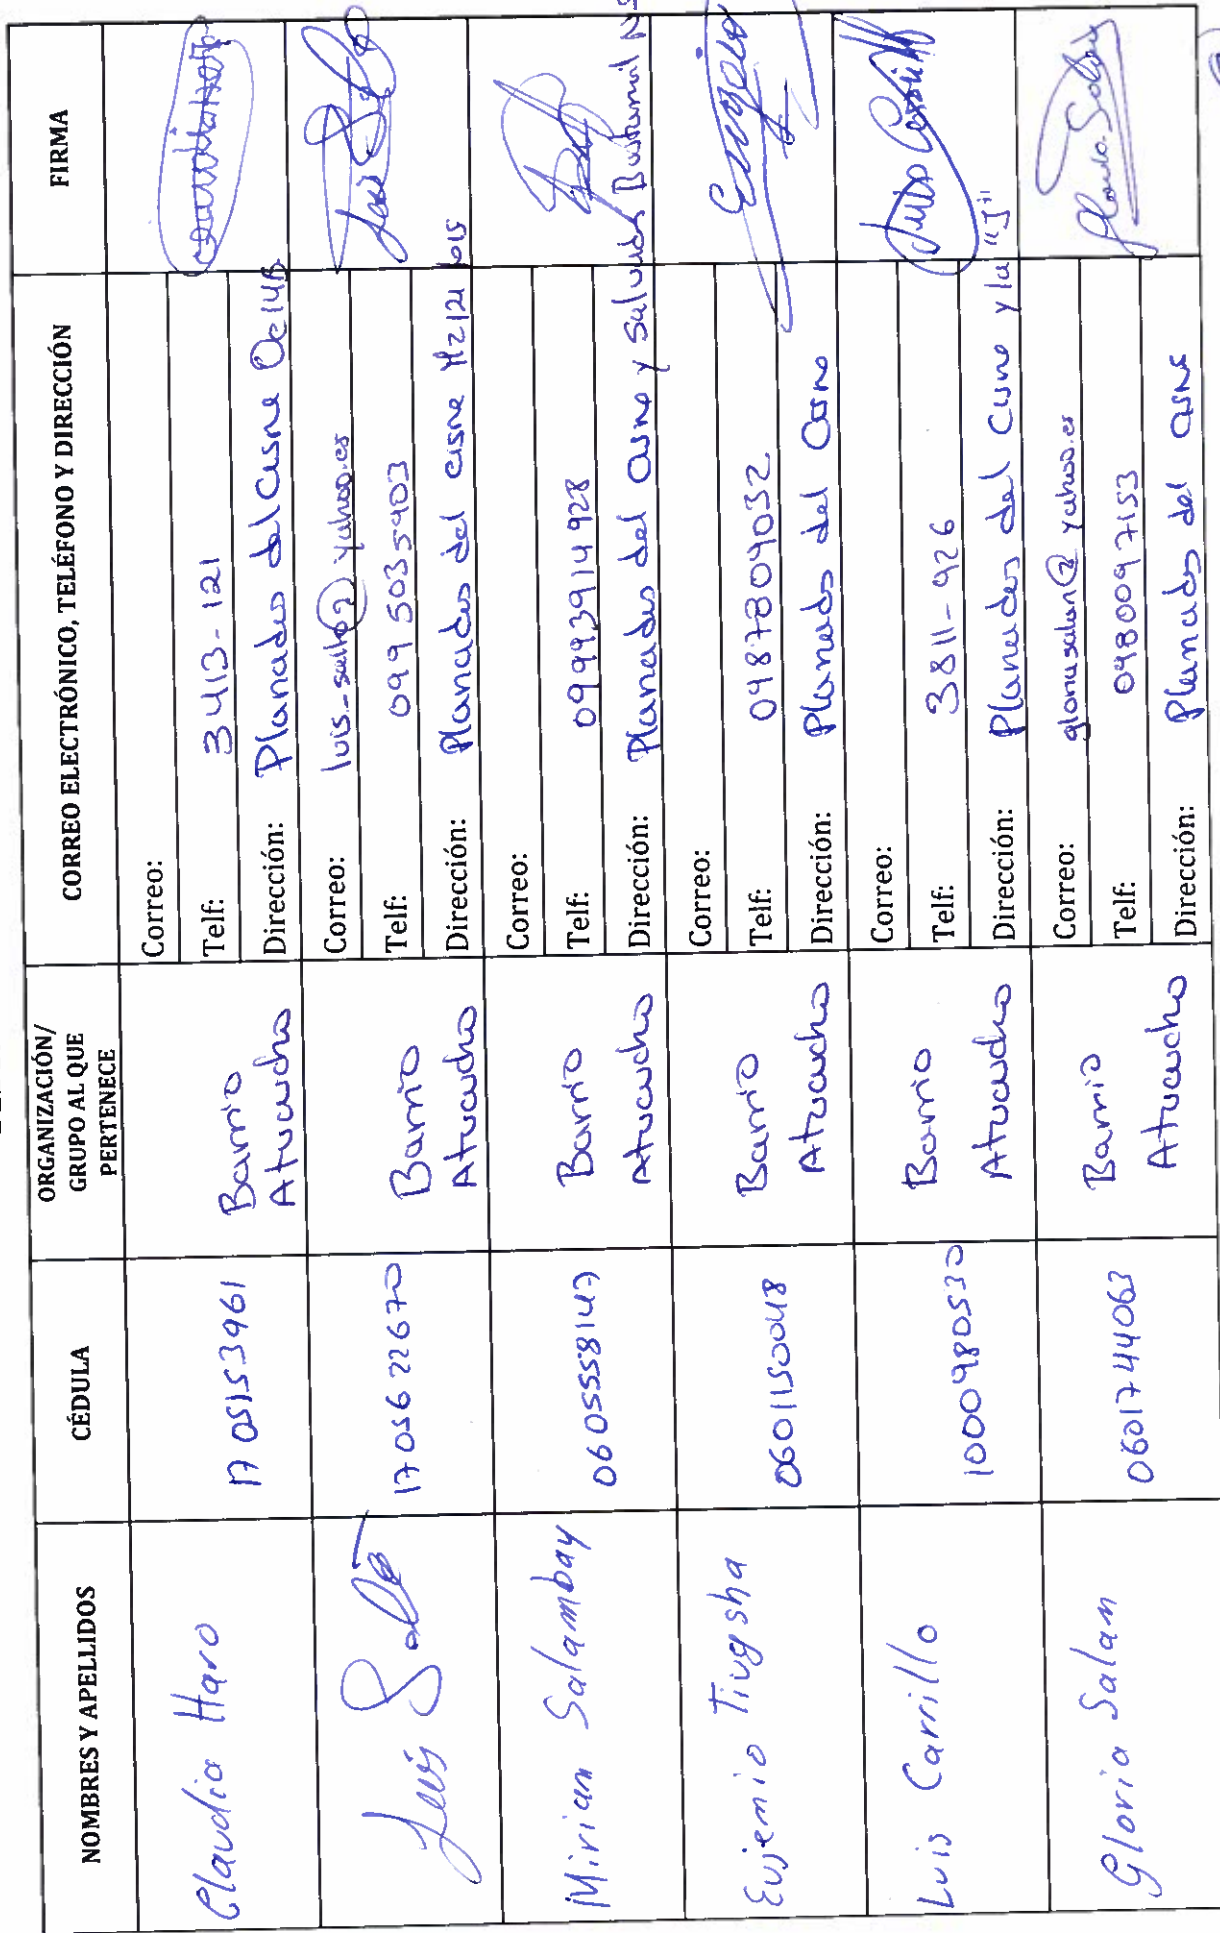 NOMBRES Y APELLIDOS
CÉDULA
ORGANIZACIÓN/
GRUPO AL QUE
PERTENECE
CORREO ELECTRÓNICO, TELÉFONO Y DIRECCIÓN
FIRMA
Claudia Haro
1705153961
Barrio
Atucucho
Correo:
Telf: 3413-121
Dirección: Planadas del Cisne
Luis
1705622670
Barrio
Atucucho
Correo: yahoo.es
Telf: 0995035403
Dirección: Planadas del cisne
Luis
Mirian Salambay
0605558147
Barrio
Atucucho
Correo:
Telf: 09993914928
Dirección: Planadas del Cisne y Salvador
Eujemio Tiugsha
0601150048
Barrio
Atucucho
Correo:
Telf: 0987809032
Dirección: Planadas del Cisne
Luis Carrillo
1000980530
Barrio
Atucucho
Correo:
Telf: 3811-926
Dirección: Planadas del Cisne y la "J"
Gloria Salan
0601744063
Barrio
Atucucho
Correo: gloriasalan@yahoo.es
Telf: 0980097153
Dirección: Planadas del Cisne